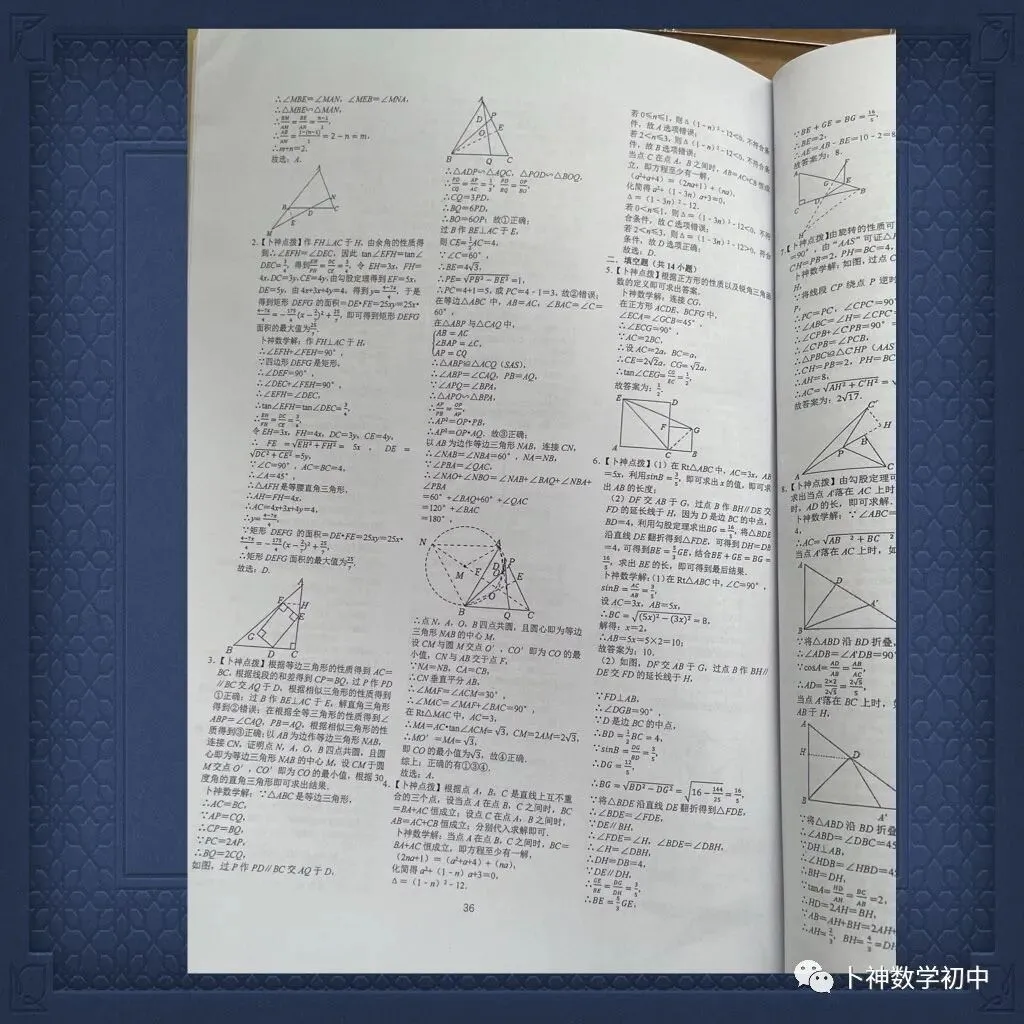 ∴∠MBE=∠MAN，∠MEB=∠MNA，
∴△MBE∽△MAN，
∴BM/AM=BE/AN=(n-1)/1，
∴AB/AM=(1-(n-1))/1=2-n=m，
∴m+n=2.
故选：A.
2.【卜神点拨】作 FH⊥AC 于 H，由余角的性质得
到∴∠EFH=∠DEC，因此 tan∠EFH=tan∠
4x，DC=3y，CE=4y，由勾股定理得到 EF=5x，
DE=5y，由 4x+3x+4y=4，得到 y=(4-7x)/4，于是
得到矩形 DEFG 的面积=DE•FE=25xy=25x•
面积的最大值为25/7.
卜神数学解：作 FH⊥AC 于 H，
∴∠EFH+∠FEH=90°，
∵四边形 DEFG 是矩形，
∴∠DEF=90°，
∴∠DEC+∠FEH=90°，
∴∠EFH=∠DEC，
∴tan∠EFH=tan∠DEC=3/4，
∴EH/FH=DC/CE=3/4，
令 EH=3x，FH=4x，DC=3y，CE=4y，
∴FE=√(EH²+FH²)=5x，DE=
√(DC²+CE²)=5y，
∵∠C=90°，AC=BC=4，
∴∠A=45°，
∴△AFH 是等腰直角三角形，
∴AH=FH=4x，
∴AC=4x+3x+4y=4，
∴y=(4-7x)/4，
∵矩形 DEFG 的面积=DE•FE=25xy=25x•
(4-7x)/4=-175/4(x-2/7)²+25/7，
∴矩形 DEFG 面积的最大值为25/7，
故选：D.
3.【卜神点拨】根据等边三角形的性质得到 AC=
BC，根据线段的和差得到 CP=BQ，过 P 作 PD
∥BC 交 AQ 于 D，根据相似三角形的性质得到
①正确；过 B 作 BE⊥AC 于 E，解直角三角形
得到②错误；在根据全等三角形的性质得到∠
ABP=∠CAQ，PB=AQ，根据相似三角形的性
质得到③正确；以 AB 为边作等边三角形 NAB，
连接 CN，证明点 N，A，O，B 四点共圆，且圆
心即为等边三角形 NAB 的中心 M，设 CM 于圆
M 交点 O′，CO′即为 CO 的最小值，根据 30
度角的直角三角形即可求出结果.
卜神数学解：∵△ABC 是等边三角形，
∴AC=BC，
∵AP=CQ，
∴CP=BQ，
∵PC=2AP，
∴BQ=2CQ，
如图，过 P 作 PD∥BC 交 AQ 于 D，
∴△ADP∽△AQC，△POD∽△BOQ，
∴PD/CQ=AP/AC=1/3，PD/BQ=OP/BO，
∴CQ=3PD，
∴BQ=6PD，
∴BO=6OP；故①正确；
过 B 作 BE⊥AC 于 E，
则 CE=1/2AC=4，
∵∠C=60°，
∴BE=4√3，
∴PE=√(PB²-BE²)=1，
∴PC=4+1=5，或 PC=4-1=3，故②错误；
在等边△ABC 中，AB=AC，∠BAC=∠C=
60°，
在△ABP 与△CAQ 中，
AB=AC
∠BAP=∠C，
AP=CQ
∴△ABP≌△ACQ（SAS），
∴∠ABP=∠CAQ，PB=AQ，
∵∠APQ=∠BPA，
∴△APO∽△BPA，
∴AP/PB=OP/AP，
∴AP²=OP•PB，
∴AP²=OP•AQ．故③正确；
以 AB 为边作等边三角形 NAB，连接 CN，
∴∠NAB=∠NBA=60°，NA=NB，
∵∠PBA=∠QAC，
∴∠NAO+∠NBO=∠NAB+∠BAQ+∠NBA+
∠PBA
=60°+∠BAQ+60°+∠QAC
=120°+∠BAC
=180°，
∴点 N，A，O，B 四点共圆，且圆心即为等边
三角形 NAB 的中心 M，
设 CM 与圆 M 交点 O′，CO′即为 CO 的最
小值，CN 与 AB 交于点 F，
∵NA=NB，CA=CB，
∴CN 垂直平分 AB，
∴∠MAF=∠ACM=30°，
∴∠MAC=∠MAF+∠BAC=90°，
在 Rt△MAC 中，AC=3，
∴MA=AC•tan∠ACM=√3，CM=2AM=2√3，
∴MO′=MA=√3，
即 CO 的最小值为√3，故④正确.
综上：正确的有①③④.
故选：A.
4.【卜神点拨】根据点 A，B，C 是直线上互不重
合的三个点，设当点 A 在点 B，C 之间时，BC
=BA+AC 恒成立；设点 C 在点 A，B 之间时，
AB=AC+CB 恒成立；分别代入求解即可.
卜神数学解：当点 A 在点 B，C 之间时，BC=
BA+AC 恒成立，即方程至少有一解，
（2na+1）=（a²+a+4）+（na），
化简得 a²+（1-n）a+3=0，
Δ=（1-n）²-12.
若 0≤n≤1，则Δ（1-n）²-12<0，不符合条
件，故 A 选项错误；
若 2<n≤3，则Δ（1-n）²-12<0，不符合条
件，故 B 选项错误；
当点 C 在点 A，B 之间时，AB=AC+CB 恒成
立，即方程至少有一解，
（a²+a+4）=（2na+1）+（na），
化简得 a²+（1-3n）a+3=0，
Δ=（1-3n）²-12.
若 0<n≤1，则Δ=（1-3n）²-12<0，不符
合条件，故 C 选项错误；
若 2≤n≤3，则Δ=（1-3n）²-12>0，符合
条件，故 D 选项正确；
故选：D.
二．填空题（共 14 小题）
5.【卜神点拨】根据正方形的性质以及锐角三角函
数的定义即可求出答案.
卜神数学解：连接 CG，
在正方形 ACDE、BCFG 中，
∠ECA=∠GCB=45°，
∴∠ECG=90°，
∵AC=2BC，
∴设 AC=2a，BC=a，
∴CE=2√2a，CG=√2a，
∴tan∠CEG=CG/EC=1/2，
故答案为：1/2.
6.【卜神点拨】（1）在 Rt△ABC 中，AC=3x，AB
=5x，利用sinB=3/5，即可求出 x 的值，即可求
出 AB 的长度；
（2）DF 交 AB 于 G，过点 B 作 BH∥DE 交
FD 的延长线于 H，因为 D 是边 BC 的中点，
BD=4，利用勾股定理求出BG=16/5，将△BDE
沿直线 DE 翻折得到△FDE，可得到 DH=DB
=4，可得到BE=5/3GE，结合BE+GE=BG=
16/5，求出 BE 的长，即可得到最后结果.
卜神数学解：（1）在 Rt△ABC 中，∠C=90°，
sinB=AC/AB=3/5，
设 AC=3x，AB=5x，
∴BC=√((5x)²-(3x)²)=8，
解得：x=2，
∴AB=5x=5×2=10；
故答案为：10.
（2）如图，DF 交 AB 于 G，过点 B 作 BH∥
DE 交 FD 的延长线于 H，
∵FD⊥AB，
∴∠DGB=90°，
∵D 是边 BC 的中点，
∴BD=1/2BC=4，
∵sinB=DG/BD=3/5，
∴DG=12/5，
∴BG=√(BD²-DG²)=√(16-144/25)=16/5，
∵将△BDE 沿直线 DE 翻折得到△FDE，
∴∠BDE=∠FDE，
∵DE∥BH，
∴∠FDE=∠H，∠BDE=∠DBH，
∴∠H=∠DBH，
∴DH=DB=4，
∵DE∥DH，
∴GE/BE=DG/DH=3/5，
∴BE=5/3GE，
36
∵BE+GE=BG=16/5，
∴BE=2，
∴AE=AB-BE=10-2=8
故答案为：8.
7.【卜神点拨】由旋转的性质可
=90°，由“AAS”可证△P
CH=PB=2，PH=BC=4，
卜神数学解：如图，过点 C
∵将线段 CP 绕点 P 逆时
P，
∴PC=PC，∠CPC=90°
∴∠ABC=∠H=∠CPC′
∴∠CPB+∠C′PB=90°
∴∠C′PB=∠PCB，
∴△PBC≌△C′HP（AAS
∴CH=PB=2，PH=BC
∴AH=8，
∴AC=√(AH²+C′H²)=
故答案为：2√17.
8.【卜神点拨】由勾股定理可
求出当点 A′落在 AC 上时
时，AD 的长，即可求解．
卜神数学解：∵∠ABC=
4，
∴AC=√(AB²+BC²)
当点 A′落在 AC 上时，如
∵将△ABD 沿 BD 折叠，
∴∠ADB=∠A′DB=90°
∵cosA=AD/AB=AB/AC，
∴AD=(2×2)/(2√5)=2√5/5，
当点 A′落在 BC 上时，如
AB 于 H，
∵将△ABD 沿 BD 折叠
∴∠ABD=∠DBC=45
∵DH⊥AB，
∴∠HDB=∠HBD=45
∴BH=DH，
∵tanA=HD/AH=BC/AB=2，
∴HD=2AH=BH，
∵AB=AH+BH=2AH+
∴AH=2/3，BH=4/3=DH
卜神数学初中